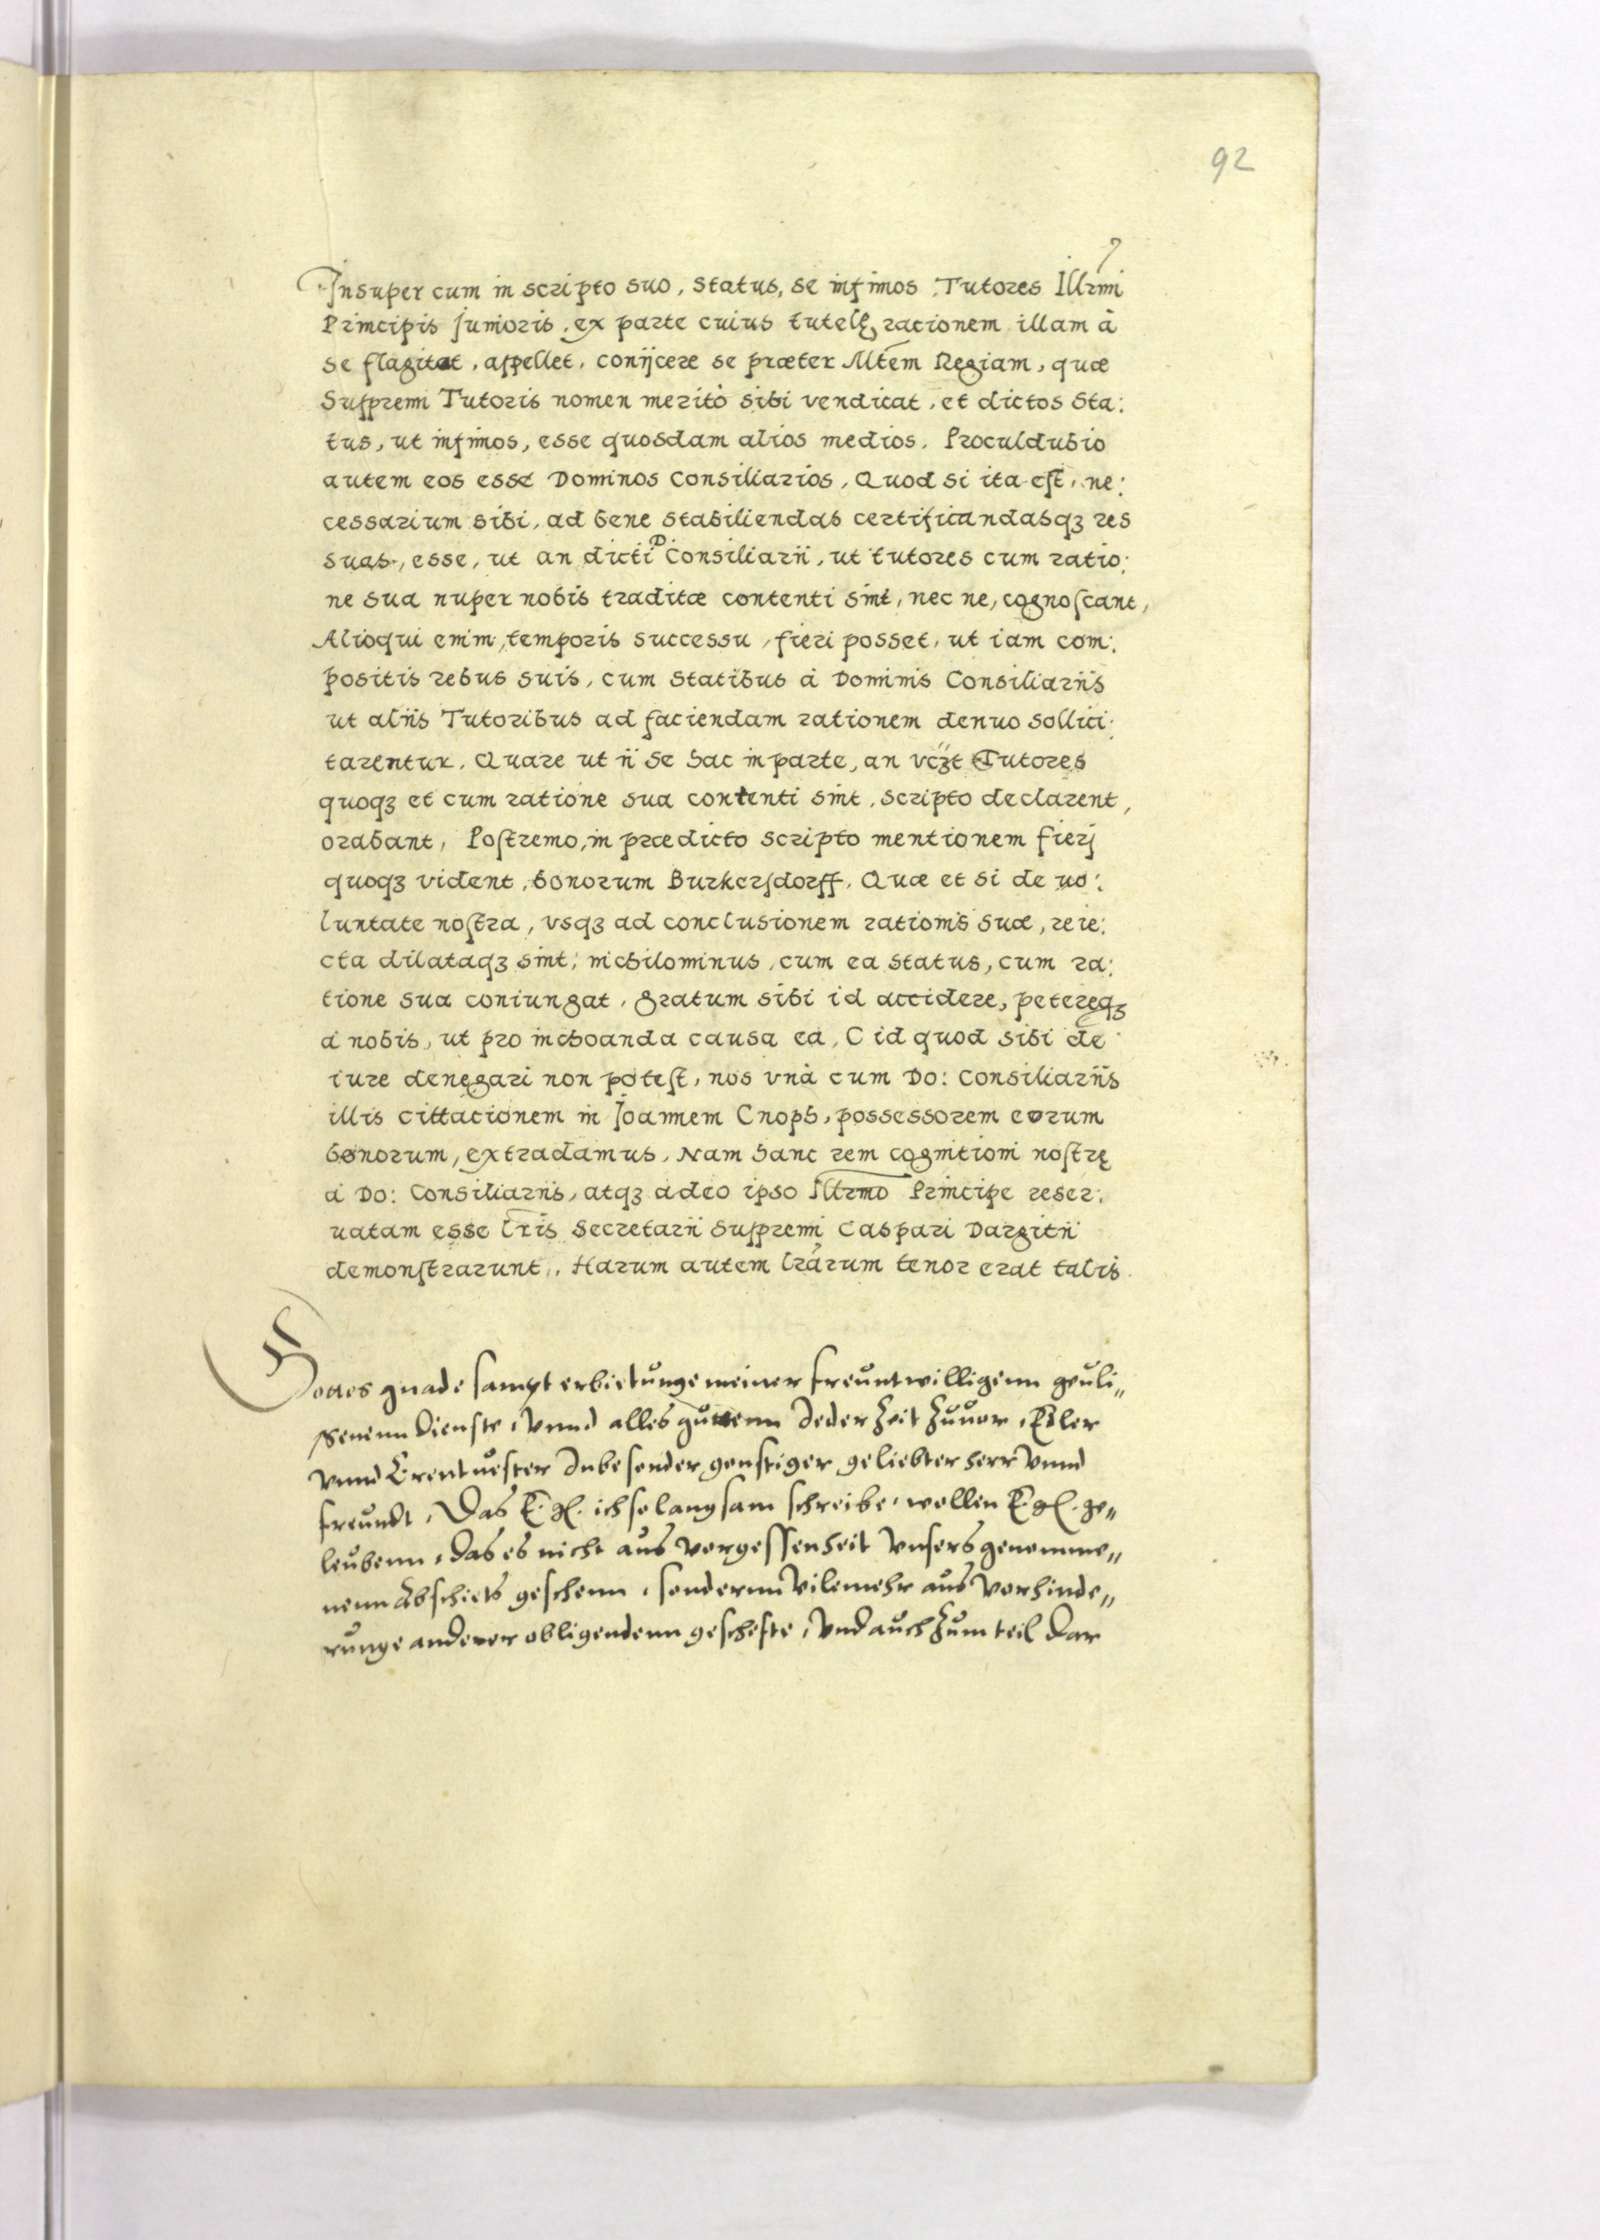 92
Insuper cum in scripto suo, Status, se infimos Tutores Illrmi
Principis Junioris, ex parte cuius tutelę racionem illam à
se flagitat, appellet, conijcere se præter Mtem Regiam, quæ
Supremi Tutoris nomen meritò sibi vendicat, et dictos Sta:
tus, ut infimos, esse quosdam alios medios. Proculdubio
autem eos esse Dominos Consiliarios, Quod si ita est, ne:
cessarium sibi, ad bene stabiliendas certificandasqꝫ res
suas, esse, ut an dicti D Consiliarii, ut tutores cum ratio:
ne sua nuper nobis traditæ contenti sint, nec ne, cognoscant,
Alioqui enim, temporis successu, fieri posset, ut iam com:
positis rebus suis, cum Statibus à Dominis Consiliariis
ut aliis Tutoribus ad faciendam rationem denuo sollici:
tarentur. Quare ut ii se hac in parte, an vcꝫt Tutores
quoqꝫ et cum ratione sua contenti sint, scripto declarent,
orabant, Postremo, in prædicto scripto mentionem fierj
quoqꝫ vident, bonorum Burkersdorff. Quæ et si de uo:
luntate nostra, vsqꝫ ad conclusionem rationis suæ, reie:
cta dilataqꝫ sint; nichilominus, cum ea status, cum ra:
tione sua coniungat, gratum sibi id accidere, petereqꝫ
à nobis, ut pro inchoanda causa ea, C id quod sibi de
iure denegari non potest, nos vnà cum Do: Consiliariis
illis cittacionem in Joannem Cnoph, possessorem eorum
bonorum, extradamus, Nam hanc rem cognitioni nostrę
à Do: Consiliariis, atqꝫ adeo ipso Illrmo Principe reser:
uatam esse lris Secretarii Supremi Caspari Dargitii
demonstrarunt,. Harum autem lrarum tenor erat talis.
Gottes gnade sampt erbietunge meiner freuntwilligenn geuli„
ssenenn dienste, vnnd alles guttenn Jeder Zeit Zuuor, Edler
vnnd Erentuester Inbesonder gonstiger geliebter herr vnnd
freundt, Das E. gl. ich so langsam schreibe, wollen E. gl. ge„
leubenn, das es nicht aus vorgessenheit vnsers genomme„
nenn Abschiets geschenn, sondernn vilemehr aus vorhinde„
runge anderer obligendenn geschefte, vnd auch Zum teil dar